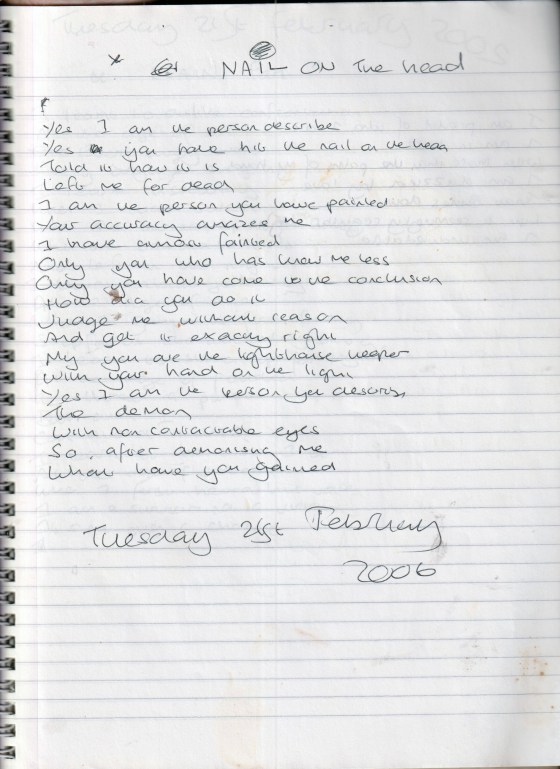 NAIL ON The head
Yes I am the person describe
Yes you have hit the nail on the head
Told it how it is
Left me for dead
I am the person you have painted
Your accuracy amazes me
I have almost fainted
Only you who has know me less
Only you have come to the conclusion
How did you do it
Judge me without reason
And get it exactly right
My you are the lighthouse keeper
With your hand on the light
Yes I am the person you describe
The demon
With non contactable eyes
So after demonising me
What have you gained
Tuesday 21st February
2006